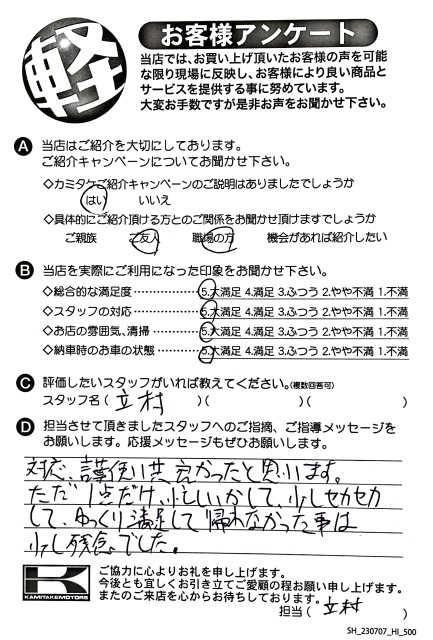 軽
お客様アンケート
当店では、お買い上げ頂いたお客様の声を可能
な限り現場に反映し、お客様により良い商品と
サービスを提供する事に努めています。
大変お手数ですが是非お声をお聞かせ下さい。
A 当店はご紹介を大切にしております。
ご紹介キャンペーンについてお聞かせ下さい。
◇カミタケご紹介キャンペーンのご説明はありましたでしょうか
はい いいえ
◇具体的にご紹介頂ける方とのご関係をお聞かせ頂けますでしょうか
ご親族 ご友人 職場の方 機会があれば紹介したい
B 当店を実際にご利用になった印象をお聞かせ下さい。
◇総合的な満足度 5.大満足 4.満足 3.ふつう 2.やや不満 1.不満
◇スタッフの対応 5.大満足 4.満足 3.ふつう 2.やや不満 1.不満
◇お店の雰囲気、清掃 5.大満足 4.満足 3.ふつう 2.やや不満 1.不満
◇納車時のお車の状態 5.大満足 4.満足 3.ふつう 2.やや不満 1.不満
C 評価したいスタッフがいれば教えてください。(複数回答可)
スタッフ名 ( 立村 )( )( )
D 担当させて頂きましたスタッフへのご指摘、ご指導メッセージを
お願いします。応援メッセージもぜひお願いします。
対応、言葉使い共、良かったと思います。
ただ1点だけ、忙しいかして、少しセカセカ
して、ゆっくり満足して帰れなかった事は
少し残念でした。
K
KAMITAKE MOTORS
ご協力に心よりお礼を申し上げます。
今後とも宜しくお引き立てご愛顧の程お願い申し上げます。
またのご来店を心からお待ちしております。
担当 ( 立村 )
SH_230707_HI_500